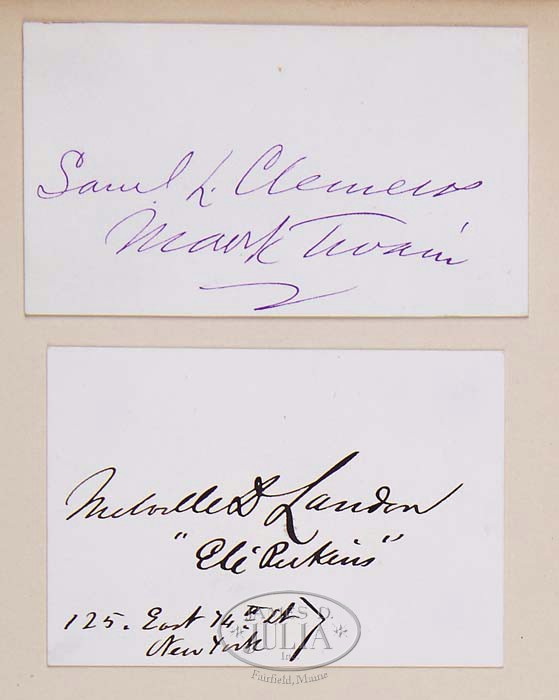 Saml. L. Clemens
Mark Twain
Melville D Landon
"Eli Perkins"
125. East 74th St
New York
JAMES D.
JULIA
Inc
Fairfield, Maine